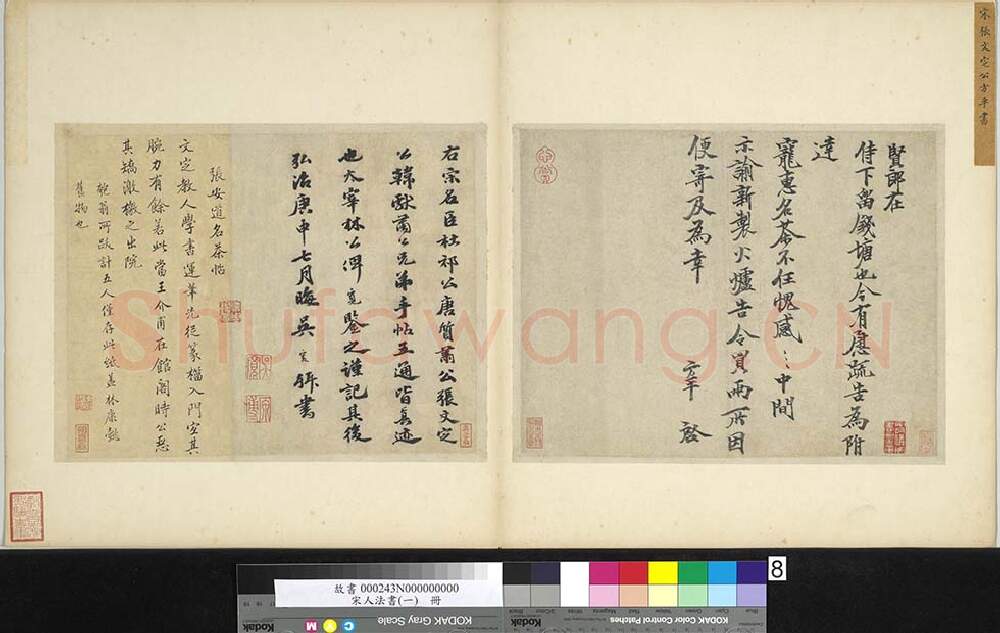 宋張文定公方平書
賢郎在
侍下留錢塘也今有 疏告為附
達
寵惠名茶不任愧感〻中間
示諭新製火爐告令買兩所因
便寄及為幸
啓
右宗名臣杜祁公唐質肅公張文定
公韓獻肅公兄弟手帖五通皆真迹
也太宰林公俾寬鑒之謹記其後
弘治庚申七月晦吳寬拜書
張安道名茶帖
文定教人學書運筆先從篆 入門 其
腕力有餘若此當王介甫在館閣時公惡
其矯激檄之出院
匏翁所跋計五人僅存此紙蓋林康懿
舊物也
Shufawang.CN
8
故書 000243N000000000
宋人法書(一) 冊
Kodak
KODAK Gray Scale
C Y M
KODAK Color Control Patches
Kodak